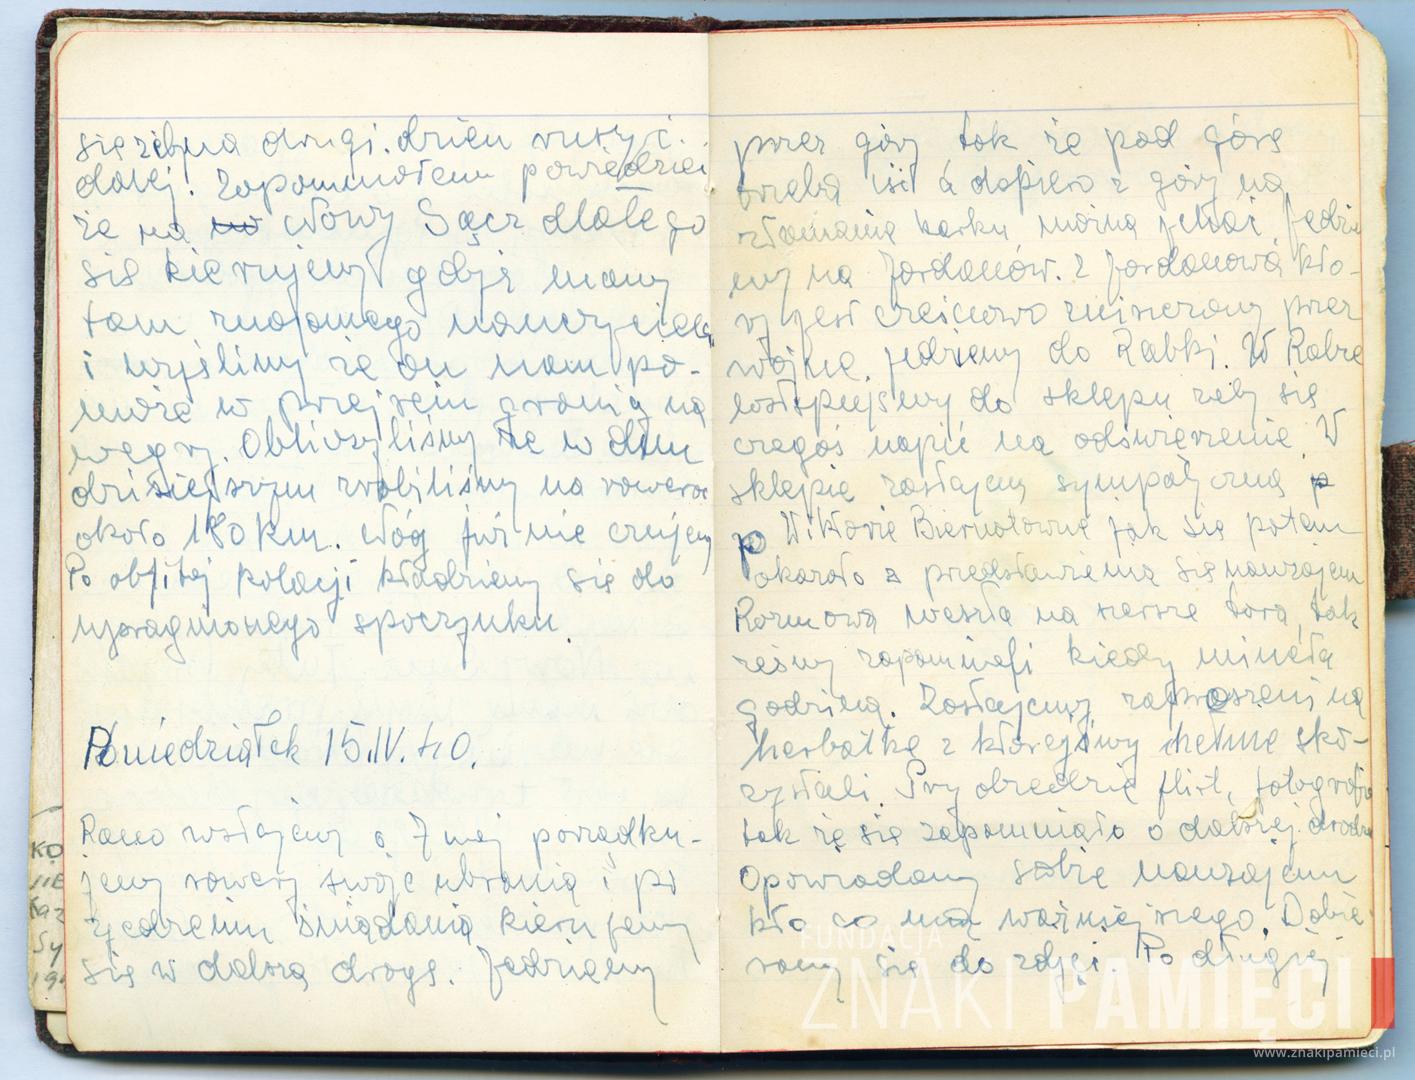 się żeby na drugi dzień ruszyć
dalej. Zapomniałem powiedzieć
że na Nowy Sącz dlatego
się kierujemy gdyż mamy
tam znajomego nauczyciela
i myślimy że on nam po-
może w przejściu granicy na
węgry. Obliczyliśmy że w dniu
dzisiejszym zrobiliśmy na rowerze
około 180 km. Nóg już nie czujemy
Po obfitej kolacji kładziemy się do
upragnionego spoczynku.
Poniedziałek 15.IV.40.
Rano wstajemy o 7 mej porządku-
jemy rowery swoje ubrania i po
zjedzeniu śniadania kierujemy
się w dalszą drogę. Jedziemy
przez góry tak że pod górę
trzeba iść a dopiero z góry na
złamanie karku można jechać. Jedzie
my na Jordanów. Z Jordanowa któ-
ry jest częściowo zniszczony przez
wojnę, jedziemy do Rabki. W Rabce
wstępujemy do sklepu żeby się
czegoś napić na odświeżenie. W
sklepie zastajemy sympatyczną p
p Wiktorię Biernatównę jak się potem
okazało z przedstawienia się nawzajem
Rozmowa weszła na szersze tora, tak
żeśmy zapomnieli kiedy minęła
godzina. Zostajemy zaproszeni na
herbatkę z którejśmy chętnie sko-
rzystali. Przy obiedzie flirt, fotografie
tak że się zapomniało o dalszej drodze
Opowiadamy sobie nawzajem
kto co ma ważniejszego. Dobie-
ramy się do zdjęć. Po długiej
KO
FUNDACJA
ZNAKI PAMIĘCI
www.znakipamieci.pl